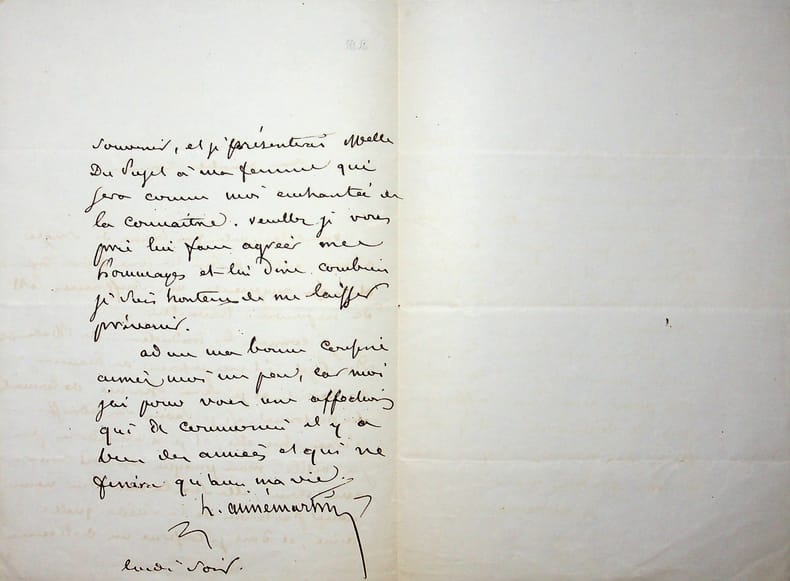 souvenir, et je présenterai Melle
Du Puget à ma femme qui
sera comme moi enchantée de
la connaître. veuillez je vous
prie lui faire agréer mes
hommages et lui dire combien
je suis honteux de me laisser
prévenir.
adieu ma bonne
aimez moi un peu, car moi
j'ai pour vous une affection
qui a commencé il y a
bien des années et qui ne
finira qu'avec ma vie.
h. annémartin
lundi soir.